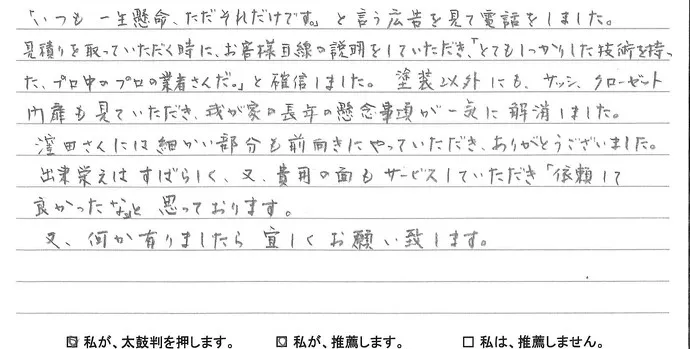 「いつも一生懸命、ただそれだけです。」と言う広告を見て電話をしました。
見積りを取っていただく時に、お客様目線の説明をしていただき、「とてもしっかりした技術を持っ
た、プロ中のプロの業者さんだ。」と確信しました。塗装以外にも、サッシ、クローゼット
内扉も見ていただき、我が家の長年の懸念事項が一気に解消しました。
窪田さんには細かい部分も前向きにやっていただき、ありがとうございました。
出来栄えはすばらしく、又、費用の面もサービスしていただき「依頼して
良かったな」と思っております。
又、何か有りましたら宜しくお願い致します。
☑ 私が、太鼓判を押します。 ☑ 私が、推薦します。 □ 私は、推薦しません。